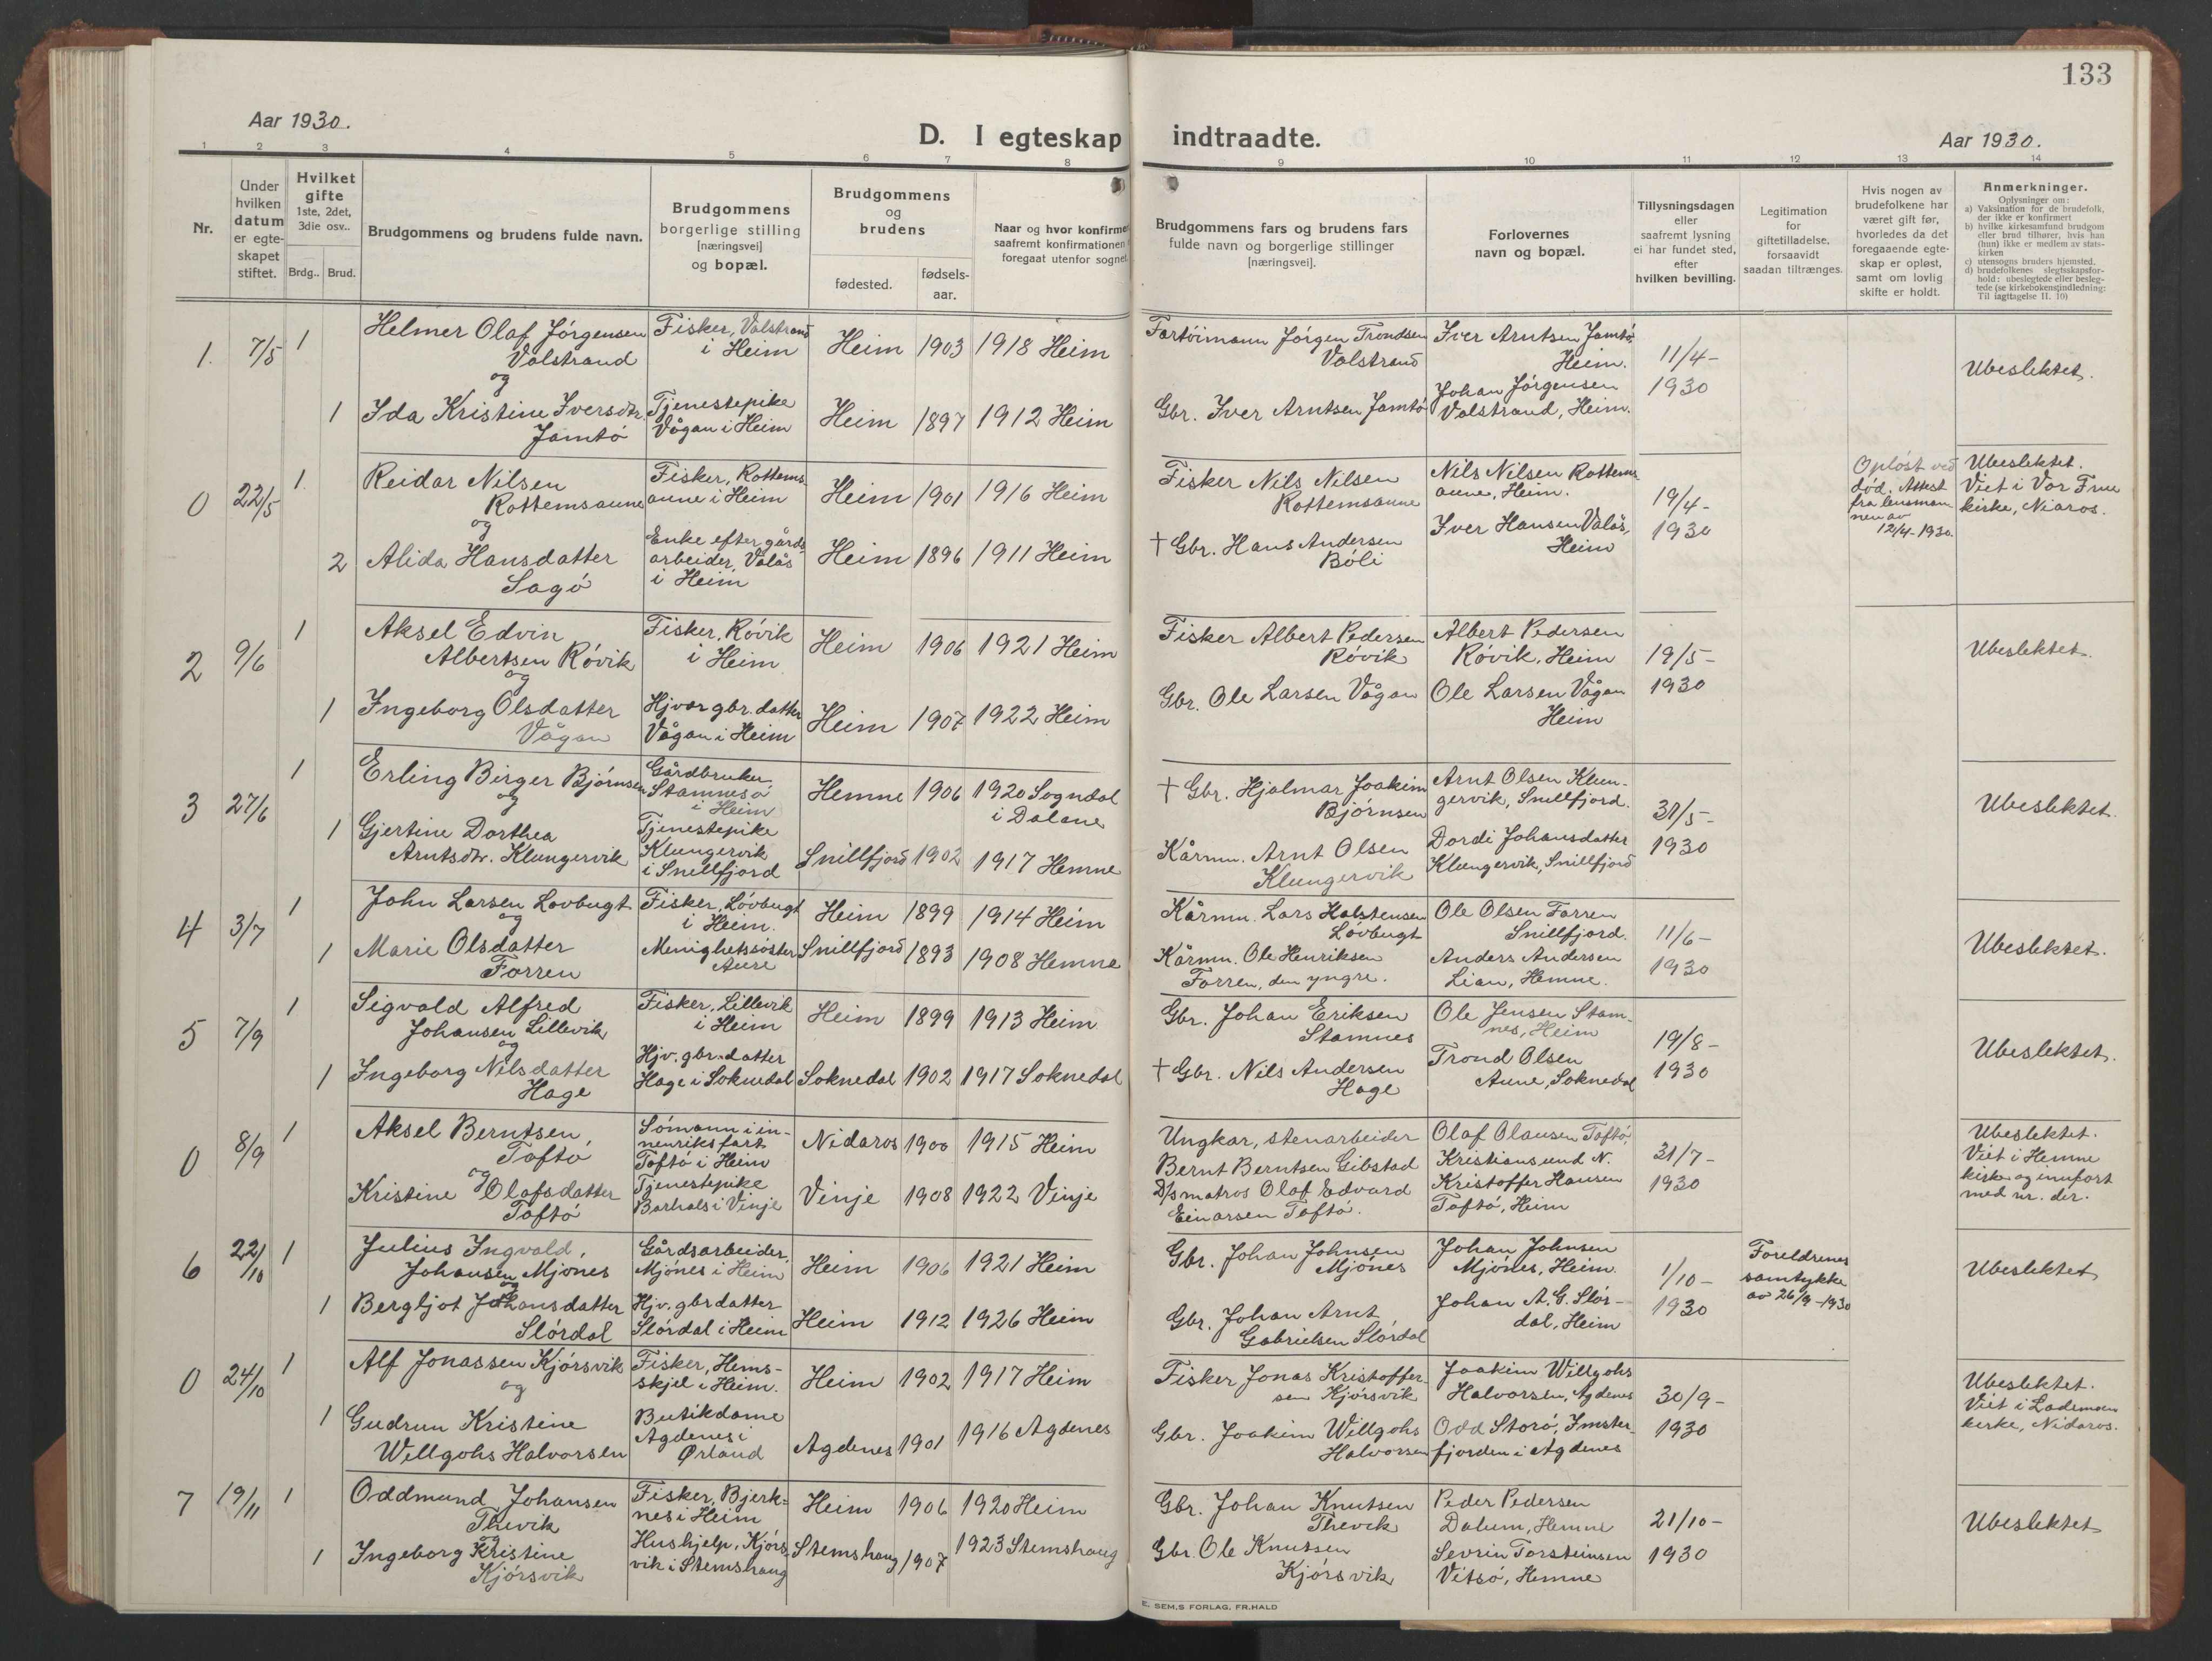 133
Aar 1930.
D. I egteskap indtraadte.
Aar 1930.
1 2 3 4 5 6 7 8 9 10 11 12 13 14
Nr.
Under hvilken datum er egte-skapet stiftet.
Hvilket gifte 1ste, 2det, 3die osv..
Brdg.. Brud.
Brudgommens og brudens fulde navn.
Brudgommens borgerlige stilling [næringsvei] og bopæl.
Brudgommens og brudens
fødested.
fødsels-aar.
Naar og hvor konfirme
saafremt konfirmationen
foregaat utenfor sognet.
Brudgommens fars og brudens fars
fulde navn og borgerlige stillinger
[næringsvei].
Forlovernes
navn og bopæl.
Tillysningsdagen
eller
saafremt lysning
ei har fundet sted,
efter
hvilken bevilling.
Legitimation
for
giftetilladelse,
forsaavidt
saadan tiltrænges.
Hvis nogen av
brudefolkene har
været gift før,
hvorledes da det
foregaaende egte-
skap er opløst,
samt om lovlig
skifte er holdt.
Anmerkninger.
Oplysninger om:
a) Vaksination for de brudefolk,
der ikke er konfirmert
b) hvilke kirkesamfund brudgom
eller brud tilhører, hvis han
(hun) ikke er medlem av stats-
kirken
c) utensogns bruders hjemsted.
d) brudefolkenes slegtsskapsfor-
hold: ubeslegtede eller besleg-
tede (se kirkebokens indledning:
Til iagttagelse II. 10)
1. 7/5 1
Helmer Olaf Jörgensen
Valstrand
og
Fisker, Valstrand
i Heim
Heim 1903 1918 Heim
Fartöimann Jörgen Trondsen
Valstrand
Iver Arntsen Jamtö
Heim.
11/4-
1930
Ubeslektet.
1 Ida Kristine Iversdtr.
Jamtö
Tjenestepike
Vågan i Heim
Heim 1897 1912 Heim
Gbr. Iver Arntsen Jamtö
Johan Jörgensen
Valstrand, Heim.
0 22/5 1.
Reidar Nilsen
Rottemsaune
og
Fisker, Rottems
aune i Heim
Heim 1901 1916 Heim
Fisker Nils Nilsen
Rottemsaune
Nils Nilsen Rottems
aune, Heim.
19/4-
1930
Oplöst ved
död. Attest
fra lensman
nen av
12/4-1930.
Ubeslektet.
Viet i Vor Frue
kirke, Nidaros.
2 Alida Hansdatter
Sagö
Enke efter gårds
arbeider, Valås
i Heim
Heim 1896 1911 Heim
† Gbr. Hans Andersen
Böli
Iver Hansen Valås,
Heim
2 9/6 1
Aksel Edvin
Albertsen Rövik
og
Fisker, Rövik
i Heim
Heim 1906 1921 Heim
Fisker Albert Pedersen
Rövik
Albert Pedersen
Rövik, Heim
19/5-
1930
Ubeslektet.
1 Ingeborg Olsdatter
Vågan
Hjvær. gbr. datter
Vågan i Heim
Heim 1907 1922 Heim
Gbr. Ole Larsen Vågan
Ole Larsen Vågan
Heim
3 27/6 1
Erling Birger Björnsen
og
Gårdbruker
Stamnesö
i Heim
Hemne 1906 1920 Sogndal
i Dalane
† Gbr. Hjalmar Joakim
Björnsen
Arnt Olsen Klun-
gervik, Snillfjord.
31/5-
1930
Ubeslektet.
1 Gjertine Dorthea
Arntsdtr. Klungervik
Tjenestepike
Klungervik
i Snillfjord
Snillfjord 1902 1917 Hemne
Kårmn. Arnt Olsen
Klungervik
Dordi Johansdatter
Klungervik, Snillfjord
4 3/7 1
John Larsen Lövbugt
og
Fisker, Lövbugt
i Heim.
Heim 1899 1914 Heim
Kårmn. Lars Halstensen
Lövbugt
Ole Olsen Forren
Snillfjord.
11/6-
1930
Ubeslektet.
1 Marie Olsdatter
Forren
Menighetssöster
Aure
Snillfjord 1893 1908 Hemne
Kårmn. Ole Henriksen
Forren, den yngre.
Anders Andersen
Lian, Hemne.
5 7/9 1
Sigvald Alfred
Johansen Lillevik
og
Fisker, Lillevik
i Heim
Heim 1899 1913 Heim
Gbr. Johan Eriksen
Stamnes
Ole Jensen Stam-
nes, Heim
19/8-
1930
Ubeslektet.
1 Ingeborg Nilsdatter
Hage
Hjv. gbr. datter
Hage i Soknedal
Soknedal 1902 1917 Soknedal
† Gbr. Nils Andersen
Hage
Trond Olsen
Aune, Soknedal
0 8/9 1
Aksel Berntsen
Toftö
og
Sömann i in-
nenriksfart
Toftö i Heim
Nidaros 1900 1915 Heim
Ungkar, stenarbeider
Bernt Berntsen Gibstad
Olaf Olausen Toftö,
Kristiansund N.
31/7-
1930
Ubeslektet.
Viet i Hemne
kirke og innfört
med nr. der.
Kristine Olafsdatter
Toftö
Tjenestepike
Barhals i Vinje
Vinje 1908 1922 Vinje
D/s matros Olaf Edvard
Einarsen Toftö.
Kristoffer Hansen
Toftö, Heim
6 22/10 1
Julius Ingvald,
Johansen Mjönes
og
Gårdsarbeider,
Mjönes i Heim
Heim 1906 1921 Heim
Gbr. Johan Johnsen
Mjönes
Johan Johnsen
Mjönes, Heim.
1/10-
1930
Foreldrenes
samtykke
av 26/9-1930
Ubeslektet
1 Bergljot Johansdatter
Slördal
Hjv. gbrdatter
Slördal i Heim
Heim 1912 1926 Heim
Gbr. Johan Arnt
Gabrielsen Slördal
Johan A.G. Slör-
dal, Heim
0 24/10 1
Alf Jonassen Kjörsvik
og
Fisker, Hems-
skjel i Heim.
Heim 1902 1917 Heim
Fisker Jonas Kristoffer-
sen Kjörsvik
Joakim Willgohs
Halvorsen, Agdenes
30/9-
1930
Ubeslektet.
Viet i Lademoen
kirke, Nidaros.
1 Gudrun Kristine
Willgohs Halvorsen
Butikdame
Agdenes i
Ørland
Agdenes 1901 1916 Agdenes
Gbr. Joakim Willgohs
Halvorsen
Odd Storö, Imster-
fjorden i Agdenes
7 19/11 1
Oddmund Johansen
Thevik
og
Fisker, Bjerk-
nes i Heim
Heim 1906 1920 Heim
Gbr. Johan Knutsen
Thevik
Peder Pedersen
Dalum, Hemne
21/10-
1930
Ubeslektet
1 Ingeborg Kristine
Kjörsvik
Hushjelp, Kjörs-
vik i Stemshaug
Stemshaug 1907 1923 Stemshaug
Gbr. Ole Knutsen
Kjörsvik
Sevrin Torsteinsen
Vitsö, Hemne
E. SEM,S FORLAG, FR.HALD